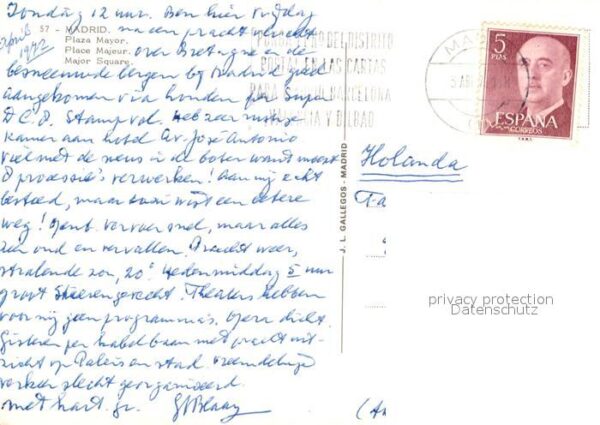 Zondag 12 uur. Ben hier vrijdag
57 - MADRID.
Plaza Mayor.
Place Majeur.
Major Square.
april 1972
na een prachtvlucht
over Bretagne en de
besneeuwde bergen bij Madrid goed
aangekomen via Londen per Super
D.C.8. Stampvol. Heb zeer rustige
kamer aan hotel Av. José Antonio
viel met de neus in de boter want moest
8 processie's verwerken! aan mij echt
besteed, maar
weg! Openb. vervoer snel, maar alles
zeer oud en vervallen. Pracht weer,
stralende zon, 20°. Hedenmiddag 5 uur
groot Stierengevecht. Theaters hebben
voor mij geen programma's. Opera dicht.
Gisteren per kabelbaan met pracht uit-
zicht op Paleis en stad. vreemdelings
verkeer slecht georganiseerd.
met hart. gr.
J. L. GALLEGOS - MADRID
DEL DISTRITO
POSTAL EN LAS CARTAS
PARA BARCELONA
Y BILBAO
5
PTAS
ESPAÑA
CORREOS
Holanda
privacy protection
Datenschutz